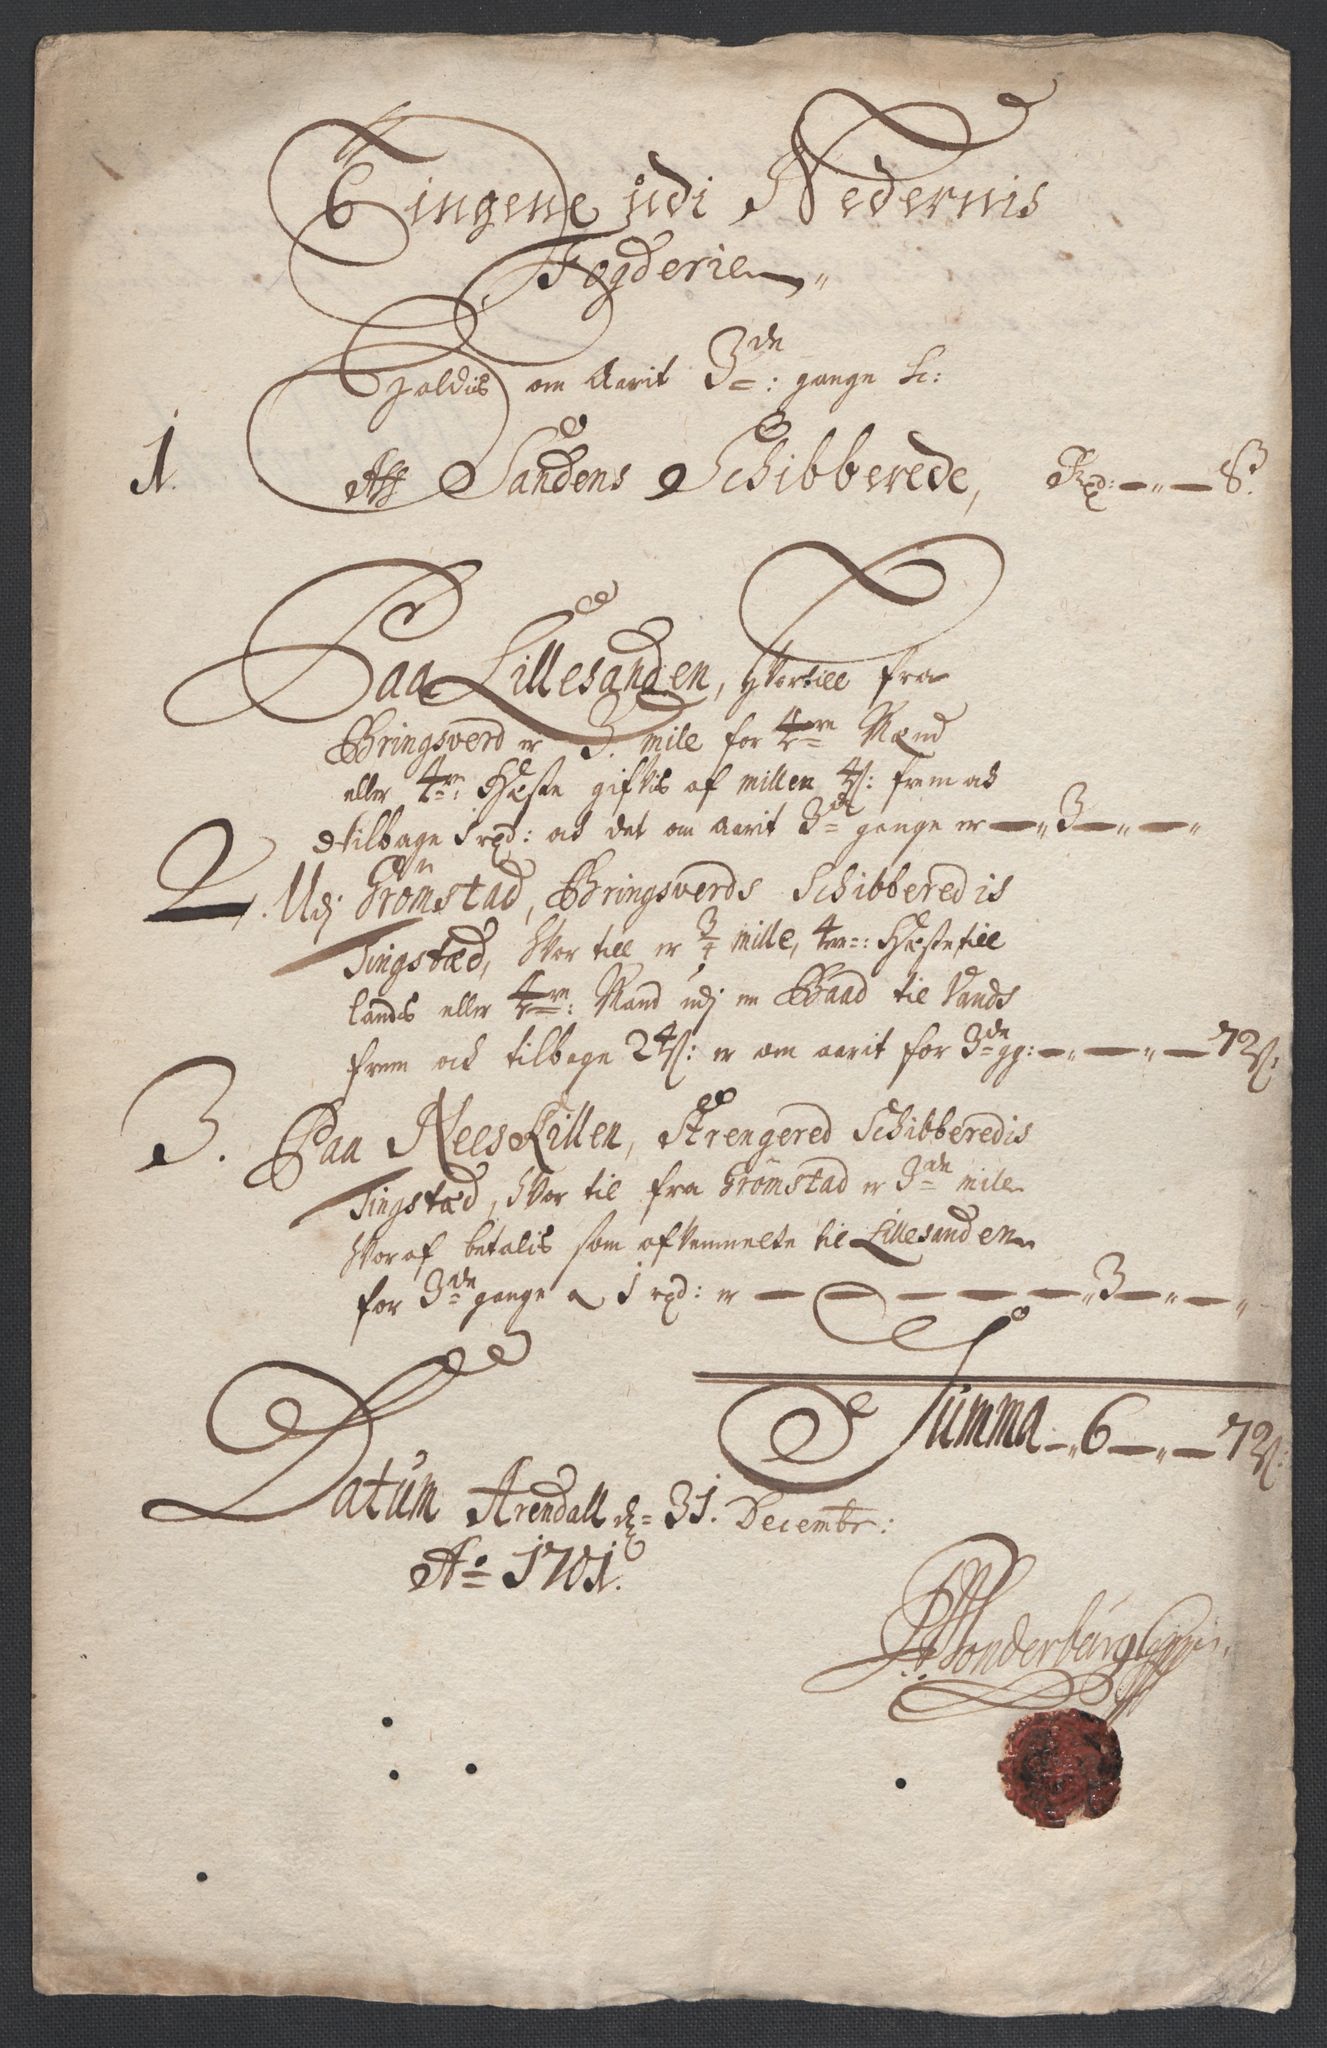 Tingene udi Nedernis
Fogderie
Holdis om Aarit 3de: gange #:
1. Aff Sandens Schibberede, Rxd: — „ — ß
Paa Lillesanden, hvortill fra
Bringsverd er 3. mile for 4re Mænd
eller 4re: Heste gifvis af millen 4ß: frem och
tilbage 1 rxd: och det om aarit 3de gange er — „ 3 — „ — „
2. Udj Grömstad, Bringsverds Schibberedis
Tingstæd, hvor till er 3/4 mille, 4re: Heste till
lands eller 4re: Mand udj en Baad til Vands
frem och tilbage 24ß: er om aarit for 3de gg: — „ — „ — 72ß:
3. Paa Nees Killen, Strengered Schibberedis
Tingstæd, hvor til fra Grömstad er 3de mile
hvoraf betalis som ofvenmelte til Lillesanden
for 3de gange a 1 rxd: er — — — — — „ 3 — „ — „
Summa — „ 6 — „ — 72ß:
Datum Arendall d= 31. Decembr:
Ao 1701.